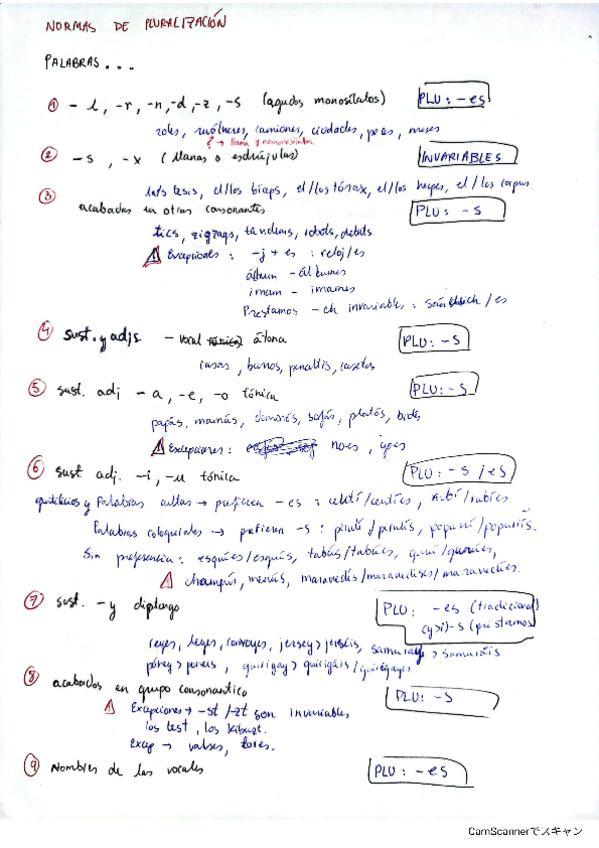 NORMAS DE PLURALIZACIÓN
PALABRAS...
① -l, -r, -n, -d, -z, -s (agudas monosílabos) PLU: -es
roles, camiones, ciudades, peces, meses
? → llana y monosílaba
② -s, -x (llanas o esdrújulas) INVARIABLES
la/s tesis, el/los bíceps, el/los tórax, el/los
③ acabadas en otras consonantes PLU: -s
tics, zigzags, tándems, robots, debuts
Excepciones: -j + es : reloj/es
álbum - álbumes
imam - imames
Prestamos -ch invariables: sándwich/es
④ sust. y adjs - vocal átona PLU: -s
casas, buenos, penaltis, casetas
⑤ sust. adj -a, -e, -o tónica PLU: -s
papás, mamás, dominós, sofás, platós, bidés
Excepciones: noes, yoes
⑥ sust adj. -i, -u tónica PLU: -s/es
gentilicios y Palabras cultas → prefieren -es : ceutí/ceutíes, rubí/rubíes
Palabras coloquiales → prefieren -s : pirulí/pirulís, popurrí/popurrís.
Sin preferencia: esquíes/esquís, tabús/tabúes,
champús, menús, maravedís/maravedises/maravedíes.
⑦ sust. -y diptongo PLU: -es (tradicional)
(y>i) -s (préstamos
reyes, leyes, convoyes, jersey > jerséis, samuray > samuráis
póney > poneis, guirigay > guirigáis/guirigayes
⑧ acabados en grupo consonantico PLU: -s
Excepciones → -st /-zt son invariables
los test, los kibutz.
Excep → valses,
⑨ Nombres de las vocales PLU: -es
CamScannerでスキャン